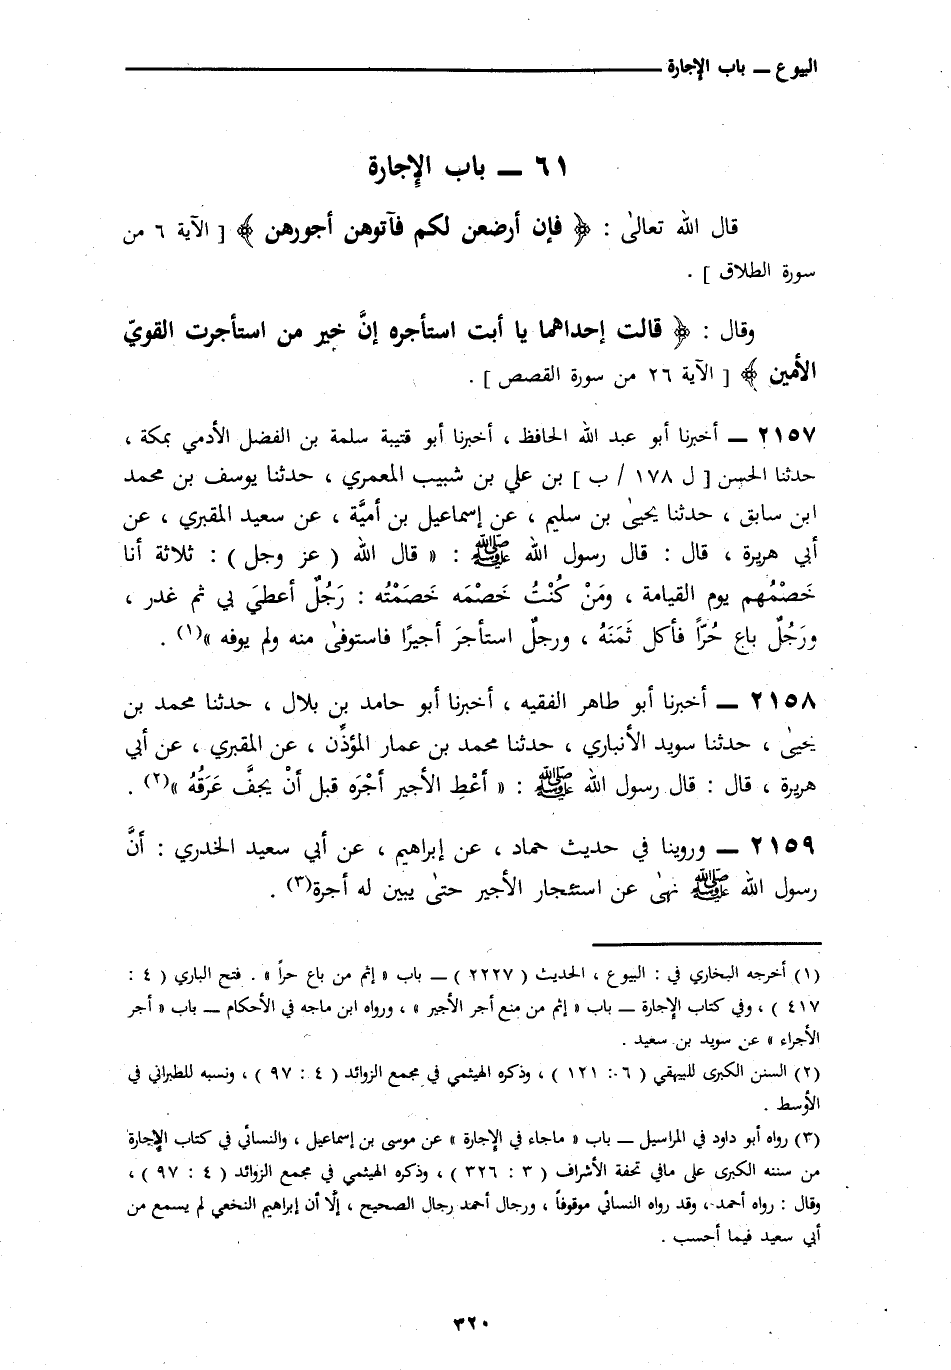 البيوع ـــ باب الإجارة
٦١ ـــ باب الإجارة
قال الله تعالىٰ : ﴿ فإن أرضعن لكم فآتوهن أجورهن ﴾ [ الآية ٦ من
سورة الطلاق ] .
وقال : ﴿ قالت إحداهما يا أبت استأجره إنَّ خير من استأجرت القويّ
الأمين ﴾ [ الآية ٢٦ من سورة القصص ] .
٢١٥٧ ـــ أخبرنا أبو عبد الله الحافظ ، أخبرنا أبو قتيبة سلمة بن الفضل الأدمي بمكة ،
حدثنا الحسن [ ل ١٧٨ / ب ] بن علي بن شبيب المعمري ، حدثنا يوسف بن محمد
ابن سابق ، حدثنا يحيىٰ بن سليم ، عن إسماعيل بن أميَّة ، عن سعيد المقبري ، عن
أبي هريرة ، قال : قال رسول الله ﷺ : « قال الله ( عز وجل ) : ثلاثة أنا
خَصْمُهم يوم القيامة ، ومَنْ كُنْتُ خَصْمَه خَصَمْتُه : رَجُلٌ أعطيَ بي ثم غدر ،
ورَجُلٌ باع حُرّاً فأكل ثَمَنَهُ ، ورجلٌ استأجرَ أجيرًا فاستوفىٰ منه ولم يوفه »(١) .
٢١٥٨ ـــ أخبرنا أبو طاهر الفقيه ، أخبرنا أبو حامد بن بلال ، حدثنا محمد بن
يحيىٰ ، حدثنا سويد الأنباري ، حدثنا محمد بن عمار المؤذِّن ، عن المقبري ، عن أبي
هريرة ، قال : قال رسول الله ﷺ : « أعْطِ الأجير أجْرَه قبل أنْ يجفَّ عَرَقُهُ »(٢) .
٢١٥٩ ـــ وروينا في حديث حماد ، عن إبراهيم ، عن أبي سعيد الخدري : أنَّ
رسول الله ﷺ نهىٰ عن استئجار الأجير حتىٰ يبين له أجرة(٣) .
(١) أخرجه البخاري في : البيوع ، الحديث ( ٢٢٢٧ ) ـــ باب « إثم من باع حراً » . فتح الباري ( ٤ :
٤١٧ ) ، وفي كتاب الإجارة ـــ باب « إثم من منع أجر الأجير » ، ورواه ابن ماجه في الأحكام ـــ باب « أجر
الأجراء » عن سويد بن سعيد .
(٢) السنن الكبرى للبيهقي ( ٠٦ : ١٢١ ) ، وذكره الهيثمي في مجمع الزوائد ( ٤ : ٩٧ ) ، ونسبه للطبراني في
الأوسط .
(٣) رواه أبو داود في المراسيل ـــ باب « ماجاء في الإجارة » عن موسى بن إسماعيل ، والنسائي في كتاب الإجارة
من سننه الكبرى على مافي تحفة الأشراف ( ٣ : ٣٢٦ ) ، وذكره الهيثمي في مجمع الزوائد ( ٤ : ٩٧ ) ،
وقال : رواه أحمد ، وقد رواه النسائي موقوفاً ، ورجال أحمد رجال الصحيح ، إلّا أن إبراهيم النخعي لم يسمع من
أبي سعيد فيما أحسب .
٣٢٠